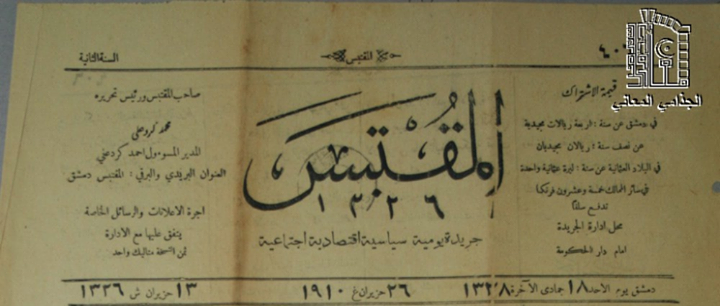 السنة الثانية
المقتبس
٤٠
قيمة الاشتراك
في دمشق عن سنة : اربعة ريالات مجيدية
عن نصف سنة : ريالان مجيديان
في البلاد العثمانية عن سنة : ليرة عثمانية واحدة
في سائر الممالك خمسة وعشرون فرنكا
تدفع سلفا
محل ادارة الجريدة
امام دار الحكومة
المقتبس
١٣٢٦
جريدة يومية سياسية اقتصادية اجتماعية
صاحب المقتبس ورئيس تحريره
محمد كرد علي
المدير المسوءول احمد كرد علي
العنوان البريدي والبرقي : المقتبس دمشق
اجرة الاعلانات والرسائل الخاصة
يتفق عليها مع الادارة
ثمن النسخة متاليك واحد
دمشق يوم الاحد ١٨ جمادى الآخرة ١٣٢٨
٢٦ حزيران غ ١٩١٠
١٣ حزيران ش ١٣٢٦
الجذامي المعاني